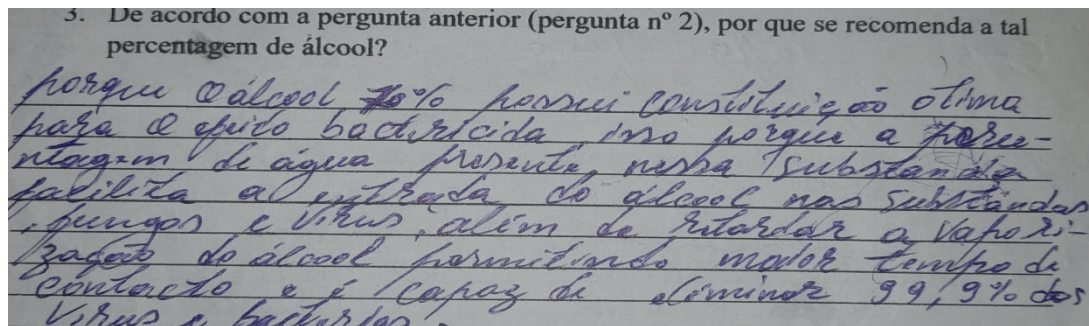 3. De acordo com a pergunta anterior (pergunta nº 2), por que se recomenda a tal
percentagem de álcool?
porque o álcool 70% possui constituição otima
para o efeito bactericida, isso porque a porce-
ntagem de água presente nessa substancia
facilita a entrada do álcool nas substândas
, fungos e virus, além de retardar a vapori-
zação do álcool permitindo maior tempo de
contacto e é capaz de eliminar 99,9% dos
virus e bacterias.